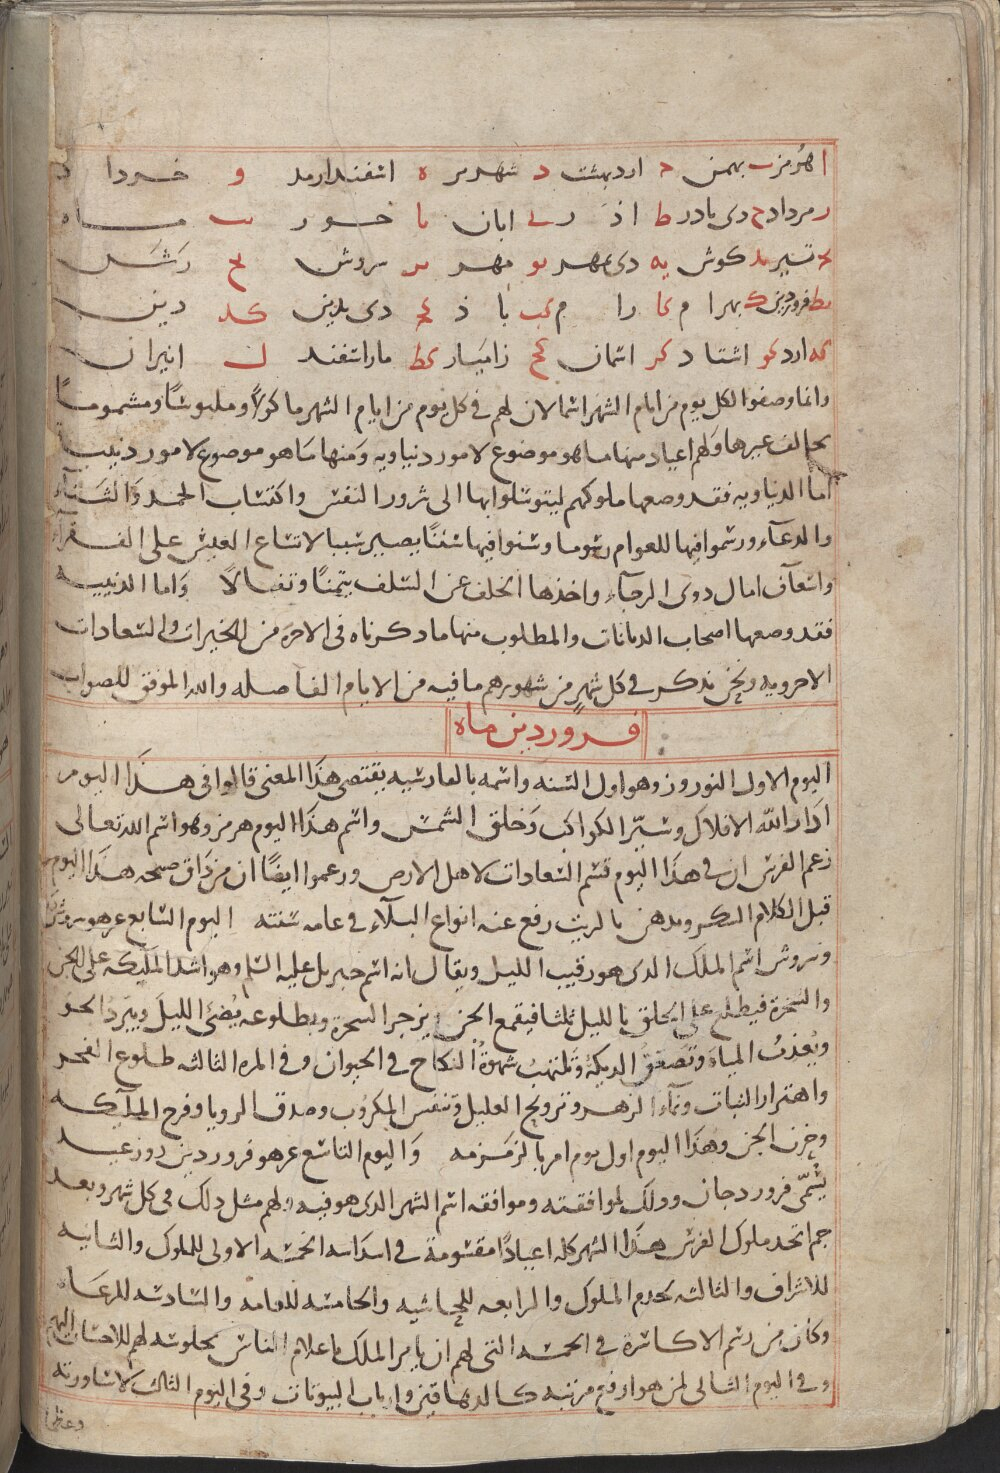 ا هرمز ب بهمن ح اردبهشت د شهرير ه اسفندارمد و خردا د
ر مرداد ح دى بادر ط اذ ر ى ابان يا خور يب ماه
يح تير يد كوش يه دى بمهر يو مهر ير سروش يح رشن
يط فروردين ك بهرا م كا را م كب با ذ كح دى بدين كد دين
كه ارد كو اشتا د كر اسمان كح زامياد كط ماراسفند ل انيران
وانما وضعوا لكل يوم من ايام الشهر اسما لان لهم فى كل يوم من ايام الشهر ماكولًا وملبوسًا ومشمومًا
يخالف غيرها ولهم اعياد منها ما هو موضوع لامور دنياويه ومنها ما هو موضوع لامور دينيه
اما الدنياويه فقد وضعها ملوكهم ليتوسلوا بها الى سرور النفس واكتساب الحمد والثناء
والدعاء ورسموا فيها للعوام رسوما وسنوا فيها سننًا يصير سببا لاتساع العيش على الفقراء
واسعاف امال ذوى الرجاء واخذها الخلف عن السلف تيمنًا وتفالًا واما الدينيه
فقد وضعها اصحاب الديانات والمطلوب منها ما دكرناه فى الاخره من الخيرات والسعادات
الاخرويه ونحن ندكر فى كل شهر من شهورهم ما فيه من الايام الفاضله والله الموفق للصواب
فروردين ماه
اليوم الاول النوروز وهو اول السنه واسمه بالفارسيه يقتضى هذا المعنى قالوا فى هذا اليوم
ادار الله الافلاك وسيّر الكواكب وخلق الشمس واسم هذا اليوم هرمز وهو اسم الله تعالى
زعم الفرس ان فى هذا اليوم قسم السعادات لاهل الارض وزعموا ايضًا ان من ذاق صبيحه هذا اليوم
قبل الكلام السكر وتدهن بالزيت رفع عنه انواع البلاء فى عامه سنته اليوم السابع عر هو سروش
وسروش اسم الملك الدى هو رقيب الليل ويقال انه اسم جبريل عليه السلم وهو اشد المليكه على الجن
والسحرة فيطلع على الخلق بالليل ثلثا فيقمع الجن ويزجر السحرة وبطلوعه يُضئ الليل ويبرد الجو
ويعذبُ المياه وتصعقُ الديكة وتلتهبُ شهوة النكاح فى الحيوان وفى المره الثالثه طلوع الفجر
واهتزاز النبات ونماء الزهر وترويح العليل وتنفس المكروب وصدق الرويا وفرح الملآيكه
وحزن الجن وهذا اليوم اول يوم امر بالزمزمه واليوم التاسع عر هو فروردين روز عيد
يسمّى فروردجان ودلك لموافقته وموافقه اسم الشهر الدى هو فيه ولهم مثل دلك فى كل شهر وبعد
جم اتخد ملوك الفرس هذا الشهر كله اعيادًا مقسومة فى اسداسه الخمسه الاولى للملوك والثانيه
للاشراف والثالثه لخدم الملوك والرابعه للحاشيه والخامسه للعامه والسادسه للرعاه
وكان من رسم الاكاسرة فى الخمسه التى لهم ان يامر الملك باعلام الناس بجلوسه لهم للاحسان اليهم
وفى اليوم الثانى لمن هو ارفع مرتبه كالدهاقين وارباب البيوتات وفى اليوم الثالث لاساورته
وعظما